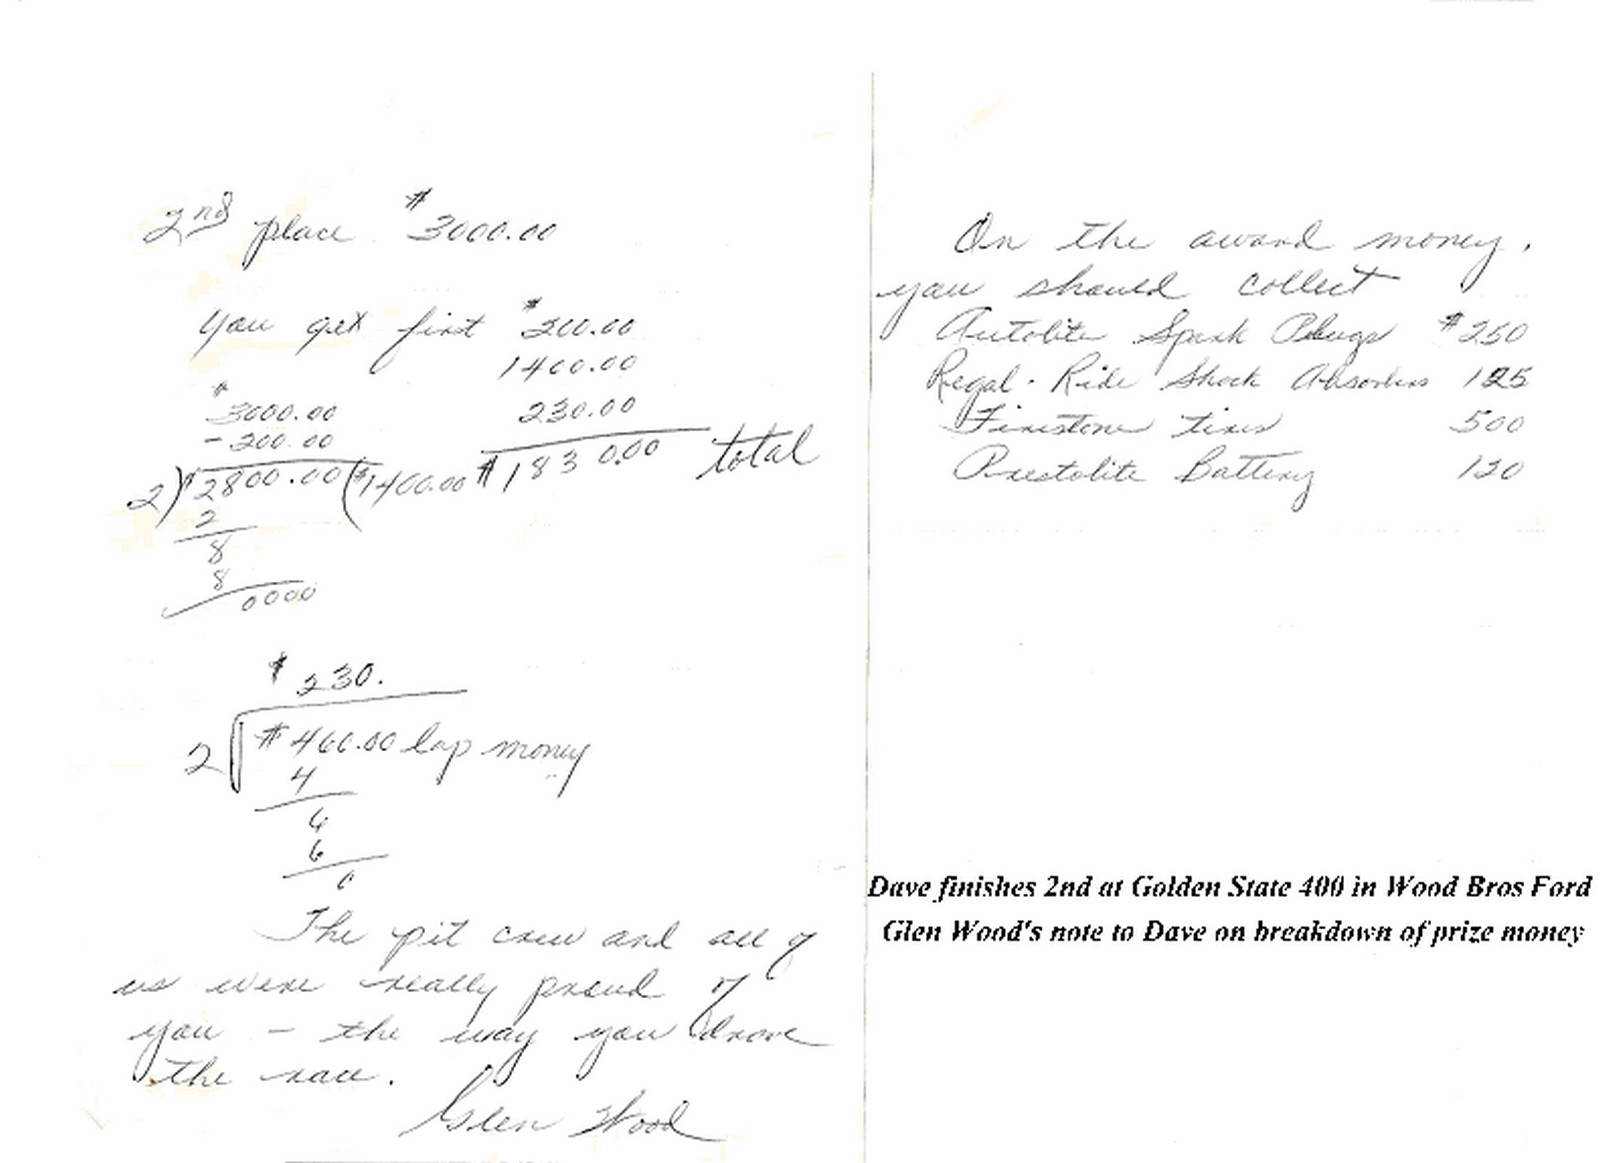 2nd place $3000.00
You get first $200.00
1400.00
230.00
$1830.00 total
$3000.00
-200.00
2)$2800.00($1400.00
2
8
8
0000
$230.
2 $460.00 lap money
4
6
6
0
The pit crew and all of
us were really proud of
you - the way you drove
the race.
Glen Wood
On the award money,
you should collect
Autolite Spark Plugs $250
Regal-Ride Shock Absorbers 125
Firestone tires 500
Prestolite Battery 120
Dave finishes 2nd at Golden State 400 in Wood Bros Ford
Glen Wood's note to Dave on breakdown of prize money